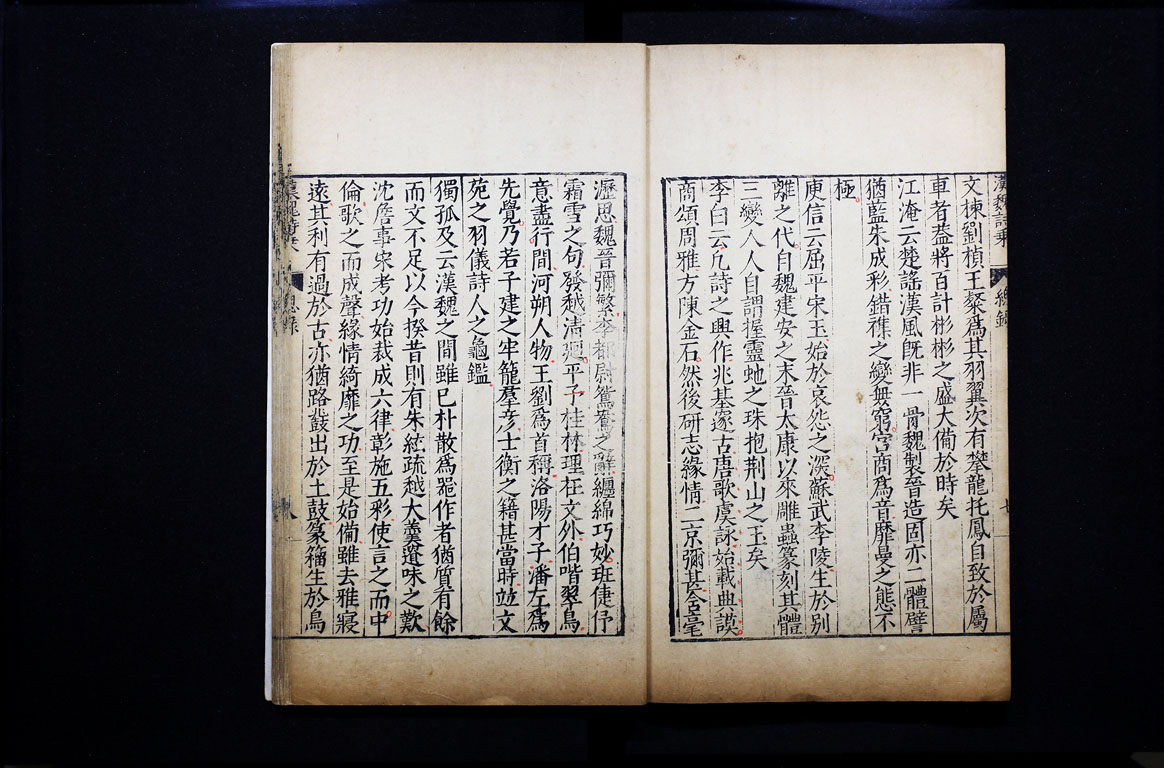 漢魏詩乘 總錄 七
文棟劉楨王粲爲其羽翼次有攀龍托鳳自致於屬
車者葢將百計彬彬之盛大備於時矣
江淹云楚謠漢風旣非一骨魏製晉造固亦二體譬
猶藍朱成彩錯襍之變無窮宮商爲音靡曼之態不
極
庾信云屈平宋玉始於哀怨之深蘇武李陵生於別
離之代自魏建安之末晉太康以來雕蟲篆刻其體
三變人人自謂握靈虵之珠抱荆山之玉矣
李白云凡詩之興作兆基邃古唐歌虞詠始載典謨
商頌周雅方陳金石然後硏志緣情二京彌甚含毫
瀝思魏晉彌繁李都尉鴛鴦之辭纏綿巧妙班倢伃
霜雪之句發越淸迥平子桂林理在文外伯喈翠鳥
意盡行間河朔人物王劉爲首稱洛陽才子潘左爲
先覺乃若子建之牢籠羣彥士衡之籍甚當時竝文
苑之羽儀詩人之龜鑑
獨孤及云漢魏之間雖已朴散爲噐作者猶質有餘
而文不足以今揆昔則有朱絃疏越大羹遺味之歎
沈詹事宋考功始裁成六律彰施五彩使言之而中
倫歌之而成聲緣情綺靡之功至是始備雖去雅寖
遠其利有過於古亦猶路鼗出於土鼓篆籀生於鳥
漢魏詩乘 總錄 八